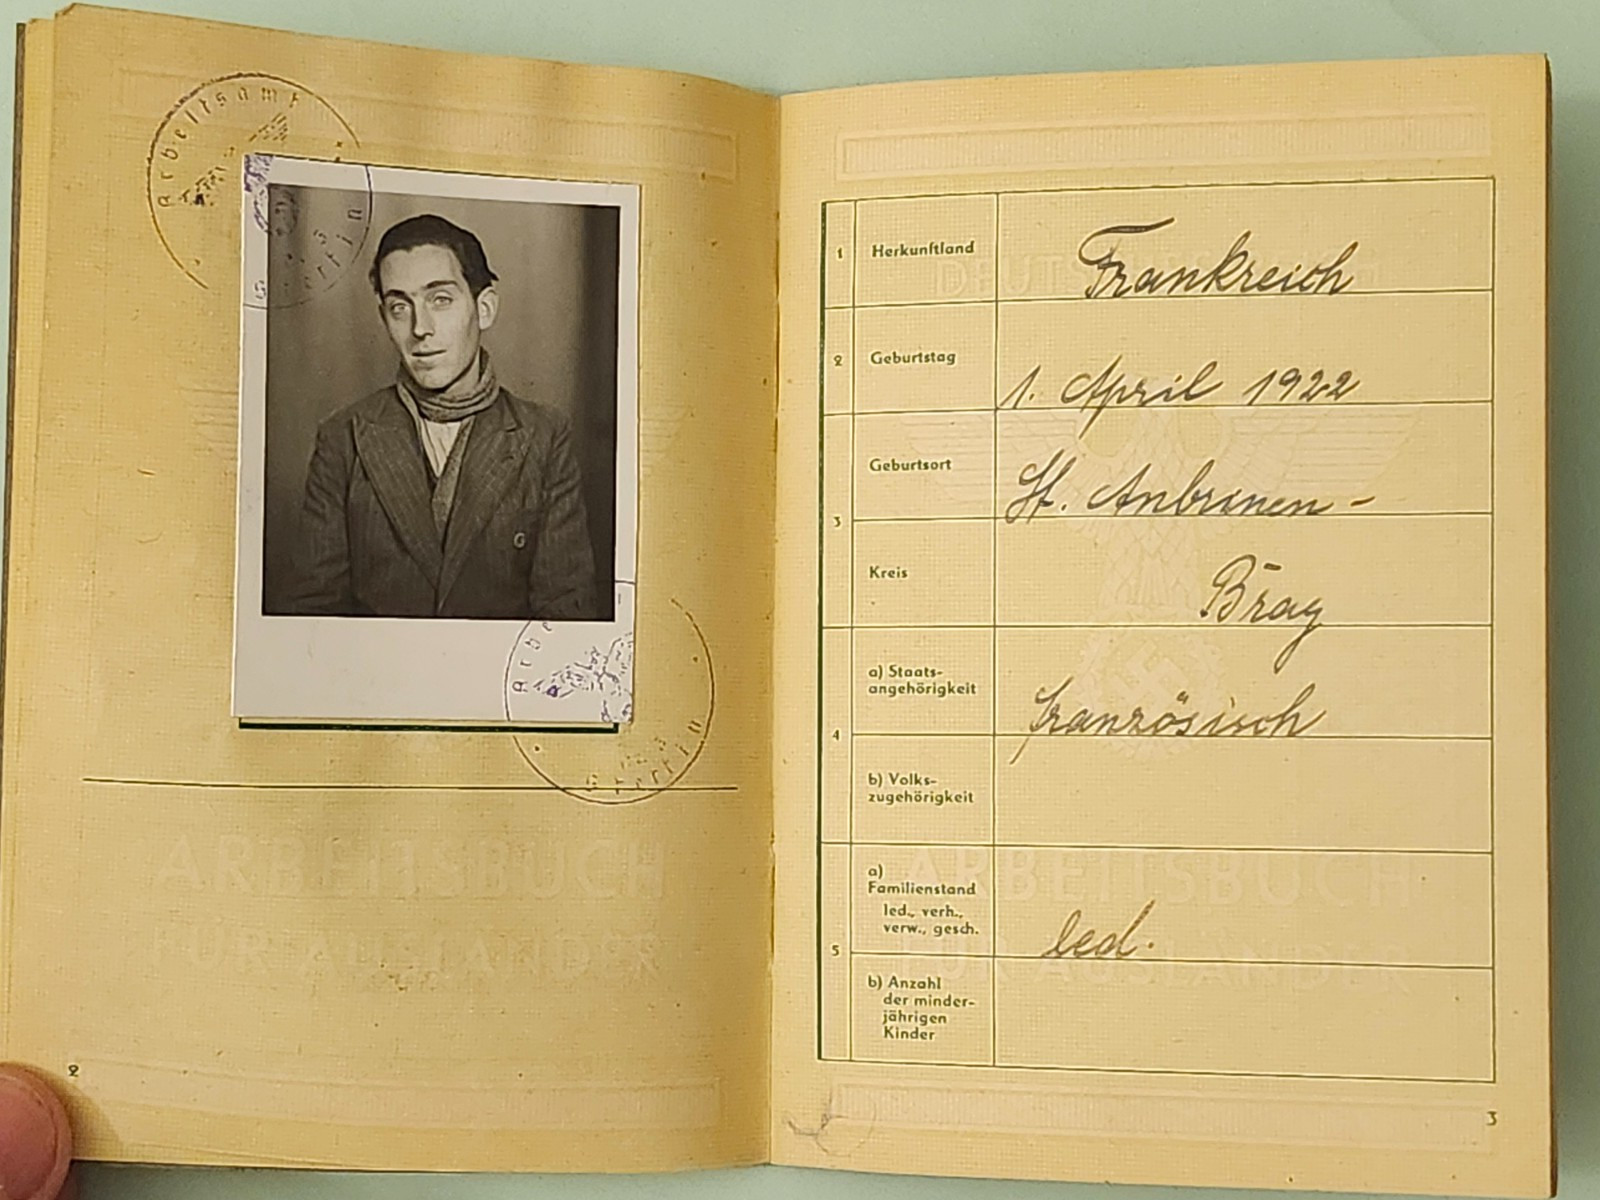 Arbeitsamt
Stettin
Arbe
Stettin
ARBEITSBUCH
FÜR AUSLÄNDER
2
DEUTSCHES REICH
1 Herkunftland Frankreich
2 Geburtstag 1. April 1922
3 Geburtsort St. Anbrinen-
Kreis Bray
4 a) Staats-
angehörigkeit französisch
b) Volks-
zugehörigkeit
5 a)
Familienstand
led., verh.,
verw., gesch. led.
b) Anzahl
der minder-
jährigen
Kinder
ARBEITSBUCH
FÜR AUSLÄNDER
3